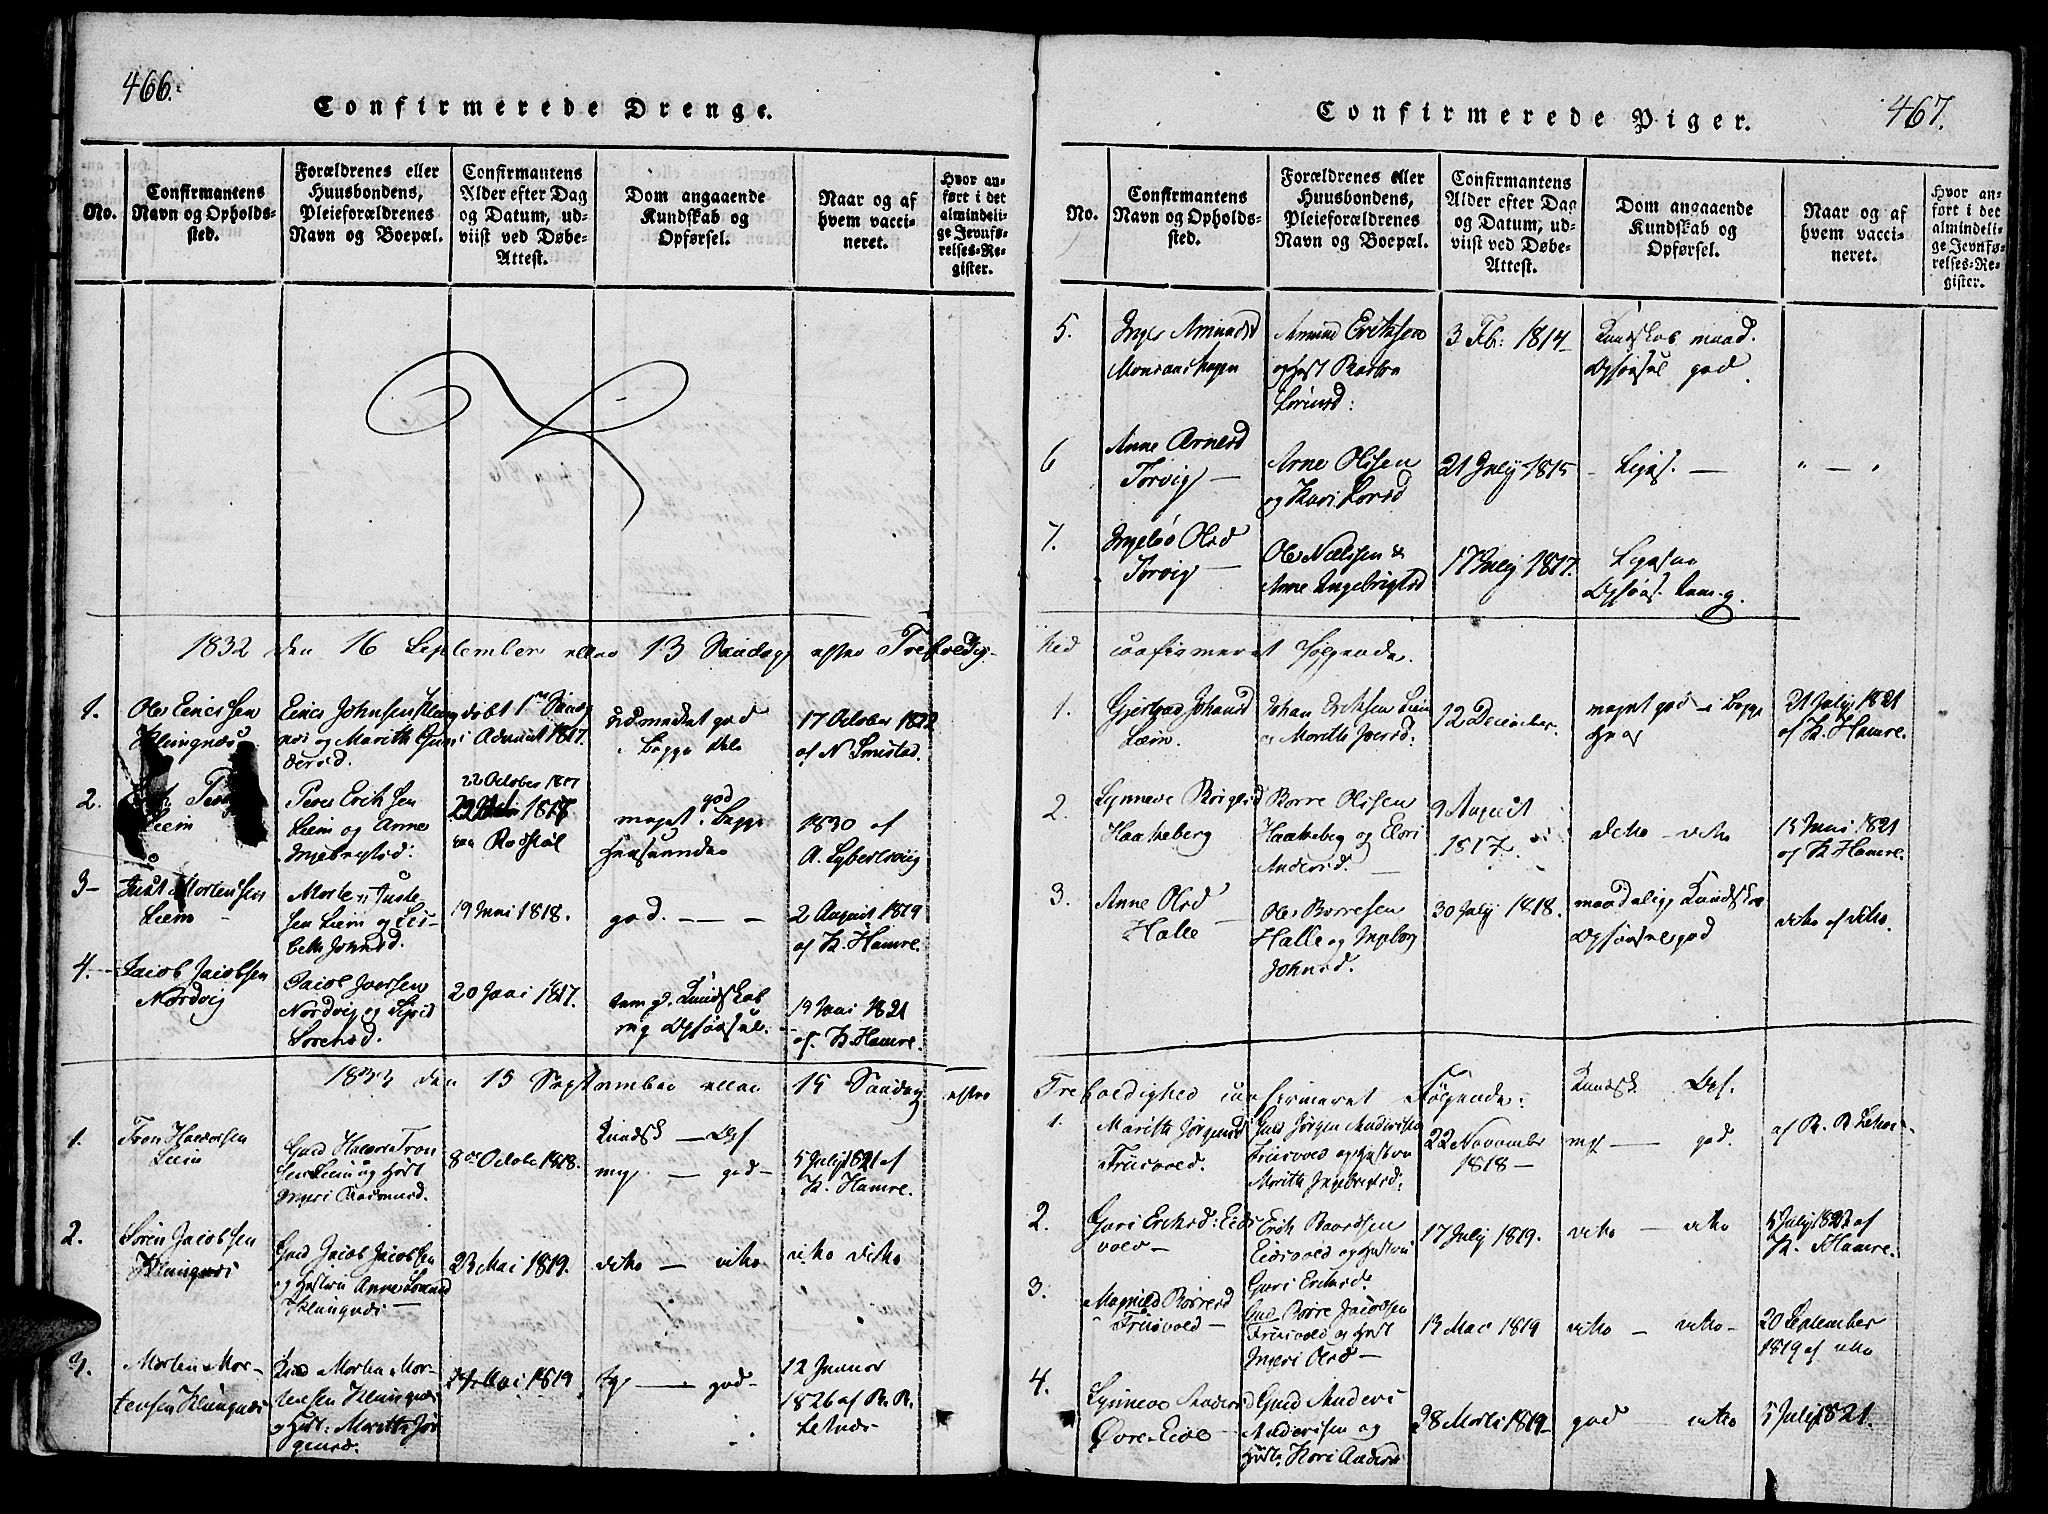 466.
Confirmerede Drenge.
No.
Confirmantens
Navn og Opholds-
sted.
Forældrenes eller
Huusbondens,
Pleieforældrenes
Navn og Boepæl.
Confirmantens
Alder efter Dag
og Datum, ud-
viist ved Døbe-
Attest.
Dom angaaende
Kundskab og
Opførsel.
Naar og af
hvem vacci-
neret.
Hvor an-
ført i det
almindeli-
ge Jevnfø-
relses-Re-
gister.
1832 den 16 September eller 13 Søndag efter Trefoldig-
1.
Ole Ericssen
Klungnæs
Erics Johnsen Klung
næs og Marith Gun
dersd.
døbt 1ste Søndag
i Advent 1817.
udmerket god
i begge Dele
17 October 1822
af N Smestad.
2.
Leem
Peder Erichsen
Leem og Anne
Ingebregtsd:
22 October 1817
1817
Rødskøl
meget god i Begge
Henseender
1830 af
A. Lybersviig
3-
Just Mortensen
Leem
Morten Juste
sen Leem og Lis-
beth Johnsd.
19 Juni 1818.
god. — —
2 August 1819
af K. Hamre.
4.
Jacob Jacobsen
Nordvig
Jacob Iversen
Nordvig og Sigrid
Sørensd.
20 Juni 1817.
tem gd. Kundskab
mg Opførsel.
19 Juni 1821
af K. Hamre.
1833 den 15 September eller 15 Søndag efter
1.
Tron Haldorsen
Leem
Gmd Haldor Tron
sen Leem og Hust
Ingeri Rasmusd.
8de Octobr 1818.
Kundsk — Opf
mg — god —
5 July 1821 af
K. Hamre.
2.
Søren Jacobsen
Klungnæs
Gmd Jacob Jacobsen
og Hustru Anne Lorend
Klungnæs —
23 Mai 1819.
dito — dito
dito dito
3.
Morten Mor-
tensen Klungnæs
Gmd Morten Mor-
tensen Klungnæs
og Hust: Marith Jør
gensd.
24 Mai 1819
mg — god-
12 Januar
1826 af R. R.
Letnæs
467.
Confirmerede Piger.
No.
Confirmantens
Navn og Opholds-
sted.
Forældrenes eller
Huusbondens,
Pleieforældrenes
Navn og Boepæl.
Confirmantens
Alder efter Dag
og Datum, ud-
viist ved Døbe-
Attest.
Dom angaaende
Kundskab og
Opførsel.
Naar og af
hvem vacci-
neret.
Hvor an-
ført i det
almindeli-
ge Jevnfø-
relses-Re-
gister.
5.
Amundsd
Amund Eriksen
og Hust
3 Fb: 1814
Kundskab maad.
Opførsel god
6
Anne Arnesd
Torvig —
Arne Olsen
og Kari Larsd
21 July 1815
- Ligs. —
" — "
7.
Ingebø Olsd
Torvig —
Ole Nielsen &
Anne Ingebrigtsd
17 July 1817.
Ligesaa
Opførs. tem. g.
hed confirmeret følgende.
1.
Gjertrud Johansd
Leem.
Johan Ericksen Leem
og Marith Iversd:
12 December.
meget god i begge
Hens
21 July 1821
af K. Hamre.
2.
Synneve Børgesd
Haakeberg
Børre Olsen
Haakeberg og Eleri
Andersd.
9 August
1817
dito — dito
15 Juni 1821
af K Hamre.
3.
Anne Olsd
Halle —
Ole Børresen
Halle og Ingeborg
Johnsd.
30 July 1818.
maadelig Kundskab
Opførsel god
dito af dito.
Trefoldighed confirmeret Følgende:
Kundsk Opf.
1.
Marith Jørgensd
Friisvold.
Gmd Jørgen Andersen
Friisvold og Hustru
Marith Ingebrigtsd.
22 November
1818 —
mg — god.
af R. R Letnæs.
2.
Guri Ericksd: Eids
vold —
Erik Baardsen
Eidsvold og Hustru
Guri Ericksd.
17 July 1819.
dito — dito
5 July 1822 af
K. Hamre.
3.
Magnild Børresd
Friisvold —
Gmd Børre Jacobsen
Friisvold og Hust
Ingeri Olsd —
13 Mai 1819
dito — dito —
20 September
1819 af dito
4.
Synneve Andersd
Øvre Eide —
Gmd Anders
Andersen og
Hustr. Kari Andersd
28 Marti 1819
god — dito
5 July 1821.